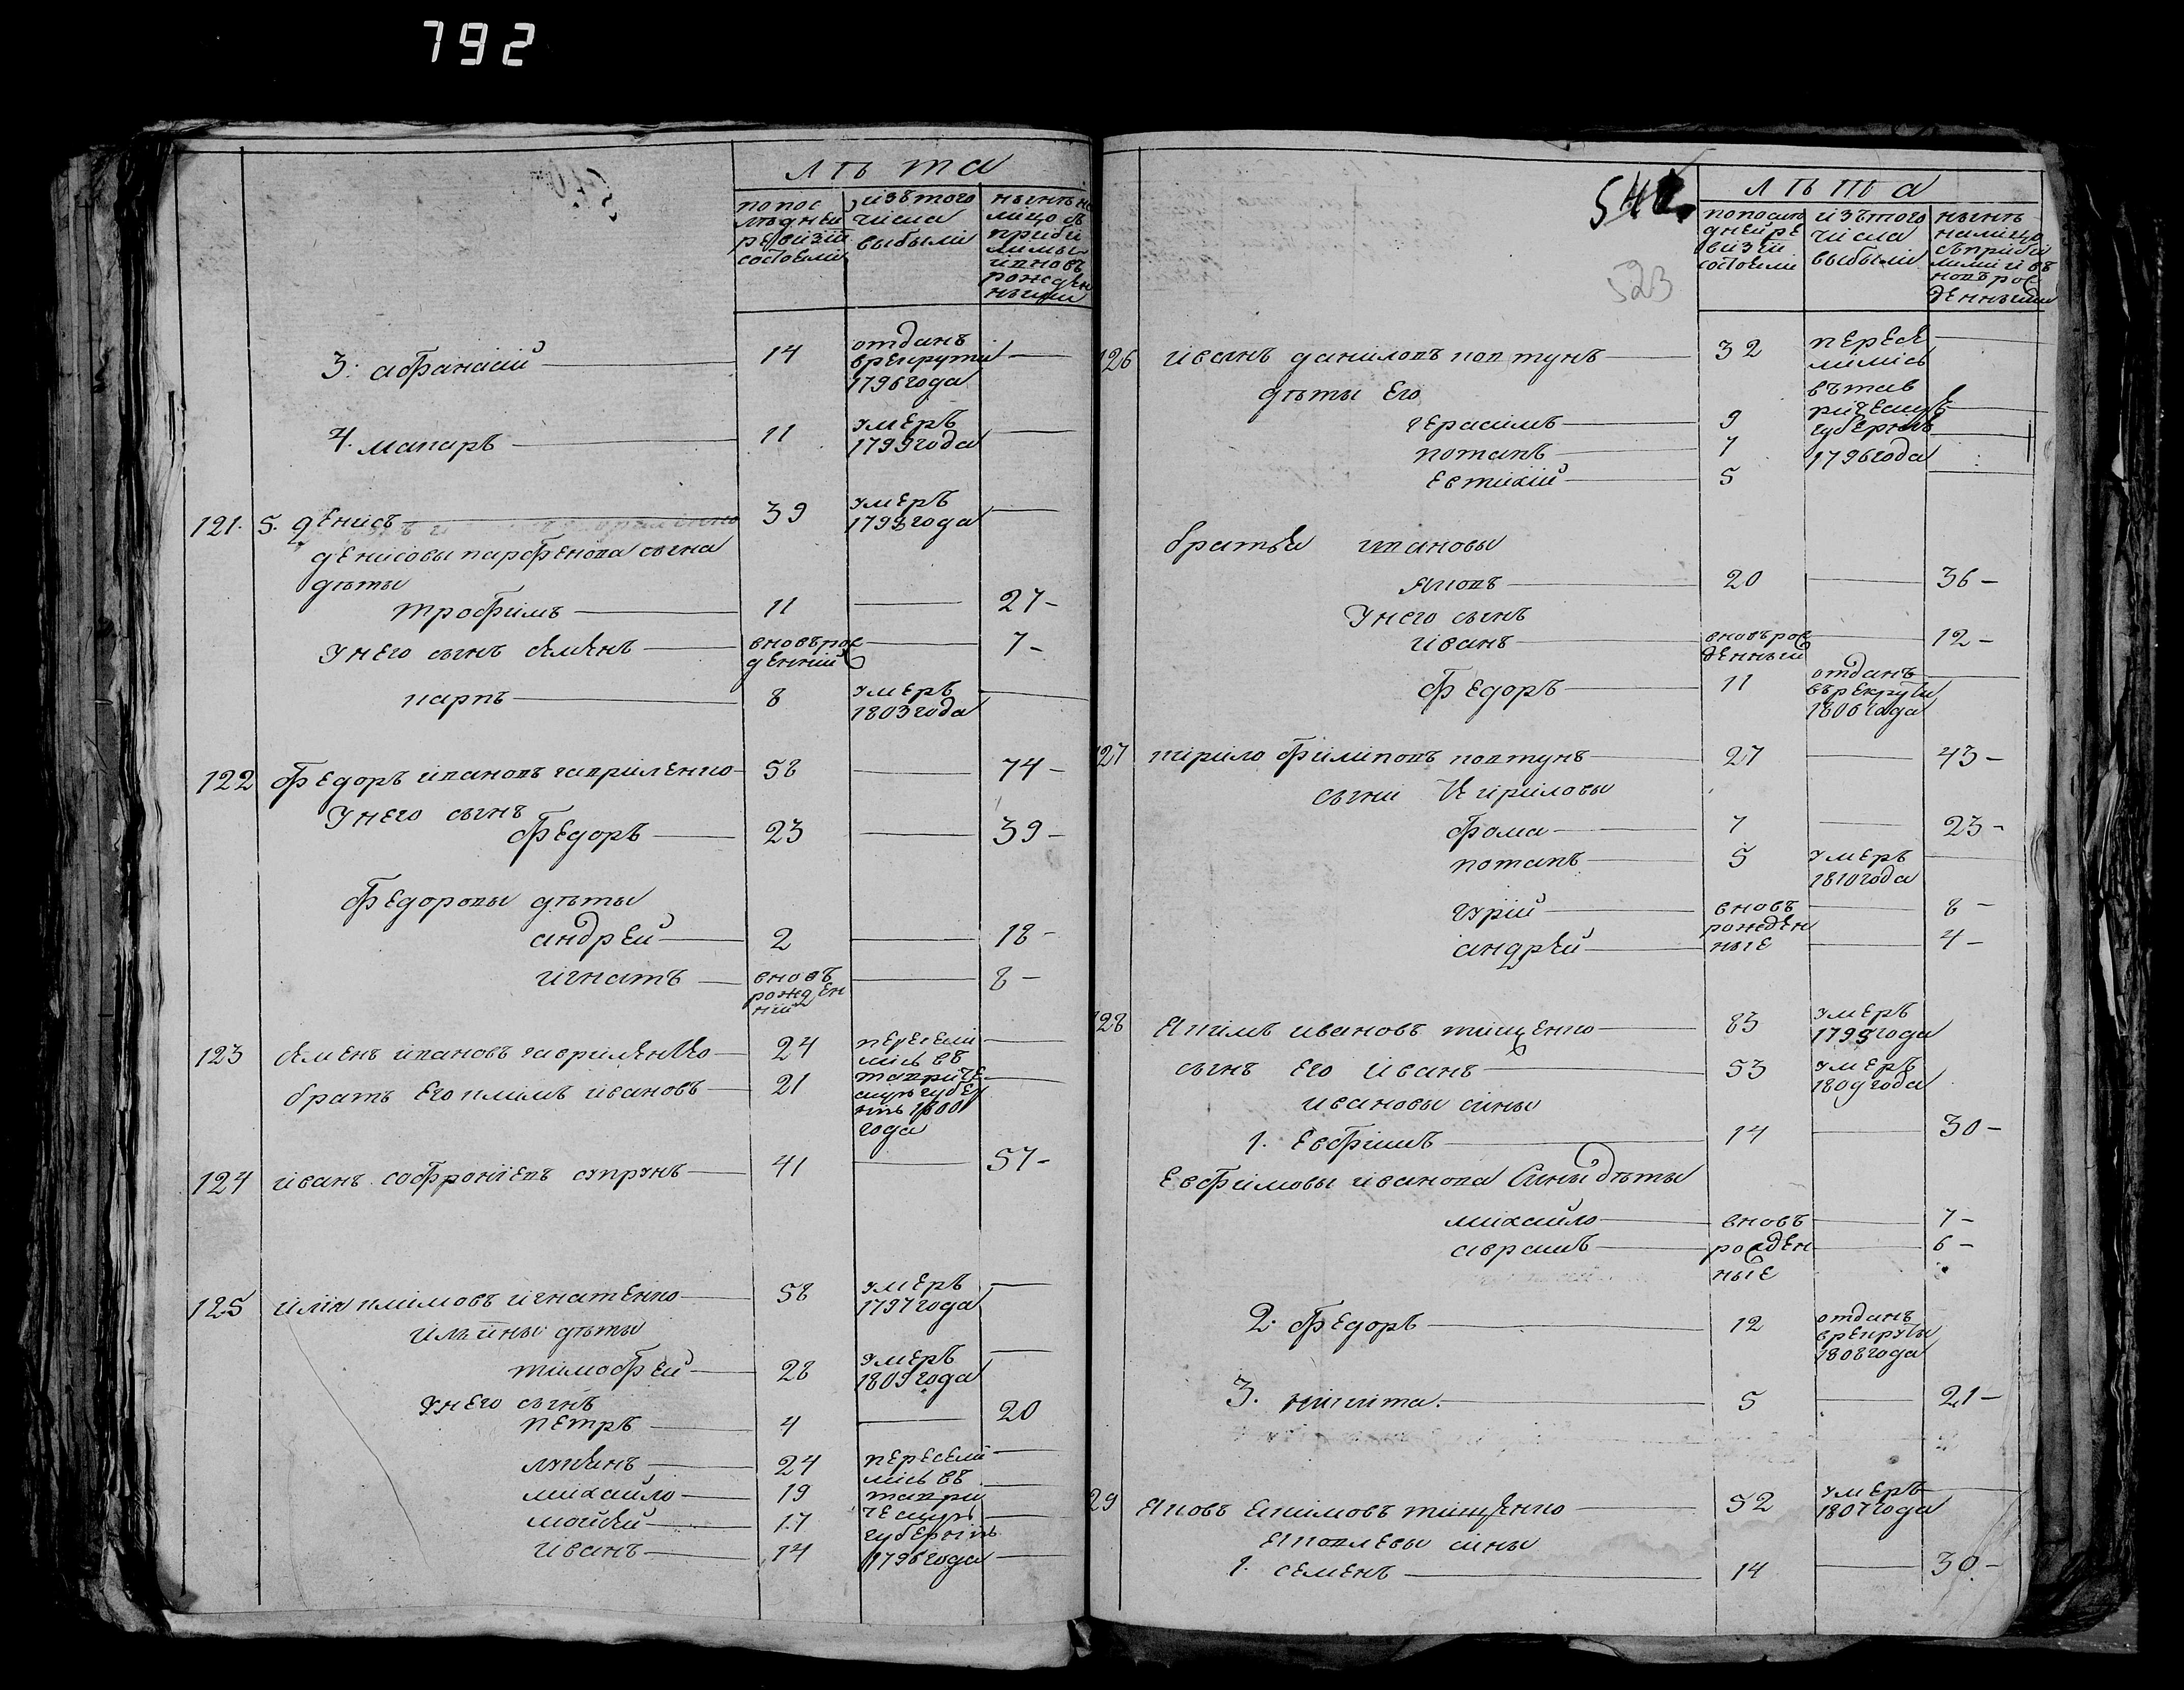 792
лѣта
попос
лѣдней
ревизіи
состояли
изъ того
числа
выбыли
нынѣ на
лицо съ
прибы
лыми
и вновь
рожден
ными
3. афанасій 14 отданъ
врекруты —
1796 года
4. макаръ 11 умеръ —
1799 года
121. 5. денисъ 39 умеръ —
1793 года
денисовы парфенова сына
дѣты
трофимъ 11 — 27 —
у него сынъ семенъ вновьрож
денній — 7 —
карпъ 8 умеръ —
1803 года
122 федоръ ивановъ гавриленко 58 — 74 —
у него сынъ
федоръ 23 — 39 —
федоровы дѣты
андрей 2 — 18 —
игнатъ вновь
рожден
ній — 8 —
123 семенъ ивановъ гавриленко 24 пересели
лись въ
братъ его климъ ивановъ 21 тавриче
скую губер
нію 1800
года
124 иванъ софроніевъ супрунъ 41 — 57 —
125 илія климовъ игнатенко 58 умеръ —
1797 года
ильины дѣты
тимофей 28 умеръ —
1803 года
у него сынъ
петръ 4 — 20
лукянъ 24 пересели
лись въ
михайло 19 таври
мойсей 17 ческую
губернію
иванъ 14 1796 года —
542.
523
лѣта
попослѣ
дней ре
визіи
состояли
изъ того
числа
выбыли
нынѣ
налицо
съприбы
лыми и въ
новь рож
денными
126 иванъ даниловъ ковтунъ 32 пересе
лились
дѣты его въ тав
герасимъ 9 рическую
губернію
потапъ 7 1796 года
евтихій 5
братья ивановы
яковъ 20 — 36 —
у него сынъ
иванъ вновьрож
денный — 12 —
федоръ 11 отданъ
въ рекруты
1806 года
127 кирило филиповъ ковтунъ 27 — 43 —
сыни кириловы
фома 7 — 23 —
потапъ 5 умеръ
1810 года
гурій вновь — 8 —
рожден
андрей ные — 4 —
128 якимъ ивановъ тищенко 83 умеръ
1799 года
сынъ его иванъ 53 умеръ
1809 года
ивановы сины
1. евфимъ 14 — 30 —
евфимовы иванова сины дѣты
михайло вновь — 7 —
аврамъ рожден — 6 —
ные
2. федоръ 12 отданъ
врекруты
1808 года
3. никита 5 — 21 —
29 яковъ якимовъ тищенко 52 умеръ
1807 года
яковлевы сины
1. семенъ 14 — 30 —